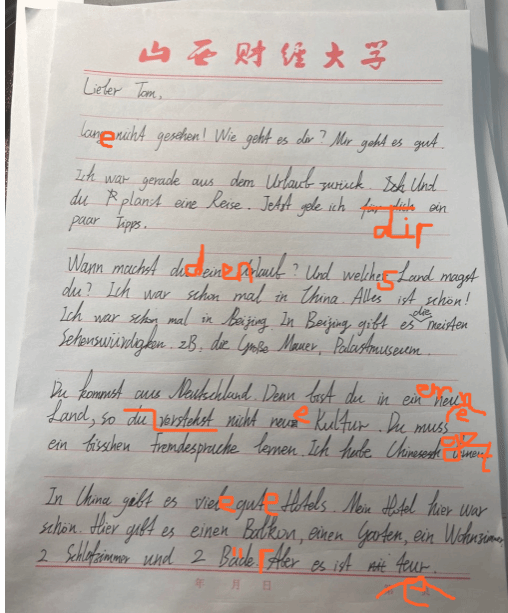 山西财经大学
Lieber Tom,
lange nicht gesehen! Wie geht es dir? Mir geht es gut.
Ich war gerade aus dem Urlaub zurück. Und
du planst eine Reise. Jetzt gebe ich für dich dir ein
paar Tipps.
Wann machst du den Urlaub? Und welches Land magst
du? Ich war schon mal in China. Alles ist schön!
Ich war schon mal in Beijing. In Beijing gibt es die meisten
Sehenswürdigkeiten. z.B. die Große Mauer, Palastmuseum.
Du kommst aus Deutschland. Denn bist du in ein
Land, so du verstehst nicht neue Kultur. Du muss
ein bisschen Fremdesprache lernen. Ich habe
In China gibt es viele gute Hotels. Mein Hotel hier war
schön. Hier gibt es einen Balkon, einen Garten, ein Wohnzimmer
2 Schlafzimmer und 2 Bäder. Aber es ist nit teur.
年 月 日